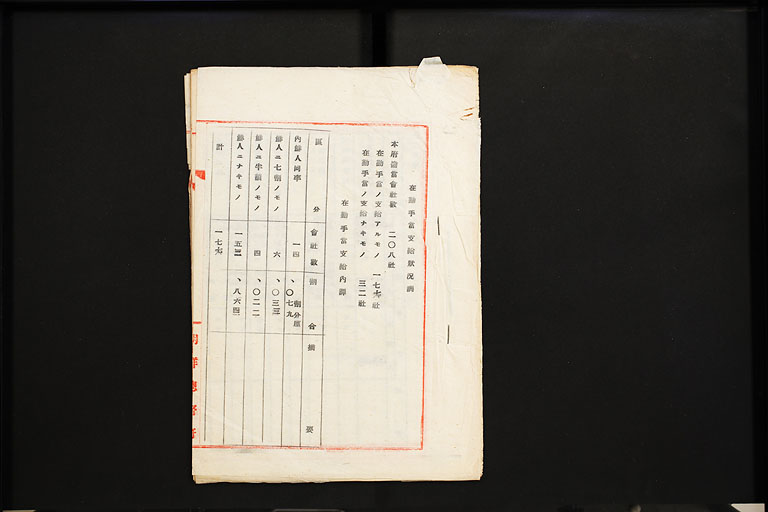 在勤手當支給狀況調
本府認當會社數 二〇八社
在勤手當ノ支給アルモノ 一七六社
在勤手當ノ支給ナキモノ 三二社
在勤手當支給內譯
區分 會社數 割合 摘要
內鮮人同率 一四 、〇七九 割分厘
鮮人ニ七割ノモノ 六 、〇三三
鮮人ニ半額ノモノ 四 、〇二二
鮮人ニナキモノ 一五二 、八六四
計 一七六
朝鮮總督府